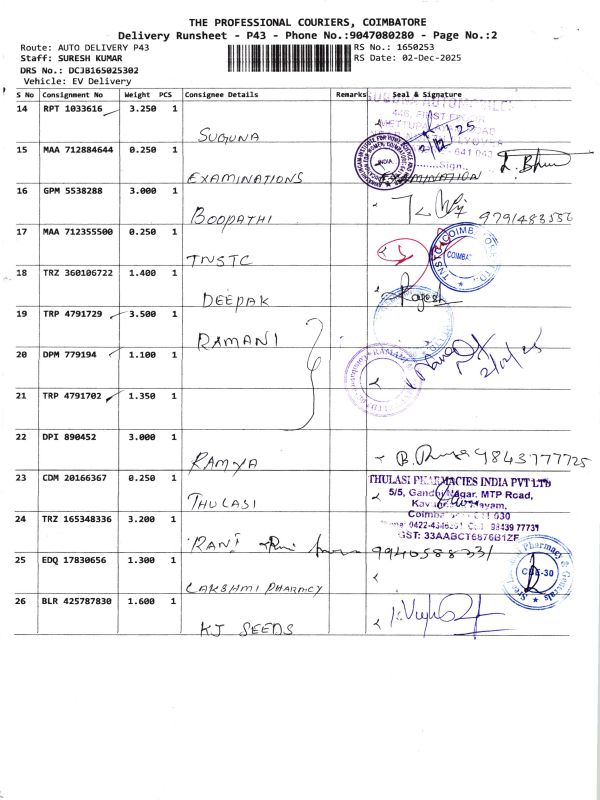 THE PROFESSIONAL COURIERS, COIMBATORE
Delivery Runsheet - P43 - Phone No.:9047080280 - Page No.:2
Route: AUTO DELIVERY P43
Staff: SURESH KUMAR
DRS No.: DCJB165025302
Vehicle: EV Delivery
RS No.: 1650253
RS Date: 02-Dec-2025
S No Consignment No Weight PCS Consignee Details Remarks Seal & Signature
14 RPT 1033616 3.250 1
SUGUNA
2/12/25
15 MAA 712884644 0.250 1
EXAMINATIONS
EXAMINATION
INDIA
641 043
16 GPM 5538288 3.000 1
BOOPATHI
9791483556
17 MAA 712355500 0.250 1
TNSTC
18 TRZ 360106722 1.400 1
DEEPAK
Rajesh
19 TRP 4791729 3.500 1
RAMANI
20 DPM 779194 1.100 1
2/12/25
21 TRP 4791702 1.350 1
22 DPI 890452 3.000 1
RAMYA
9843777725
23 CDM 20166367 0.250 1
THULASI
THULASI PHARMACIES INDIA PVT LTD
5/5, Gandhi Nagar, MTP Road,
GST: 33AABCT6876B1ZF
24 TRZ 165348336 3.200 1
RANI
9940588331
25 EDQ 17830656 1.300 1
LAKSHMI PHARMACY
26 BLR 425787830 1.600 1
KJ SEEDS